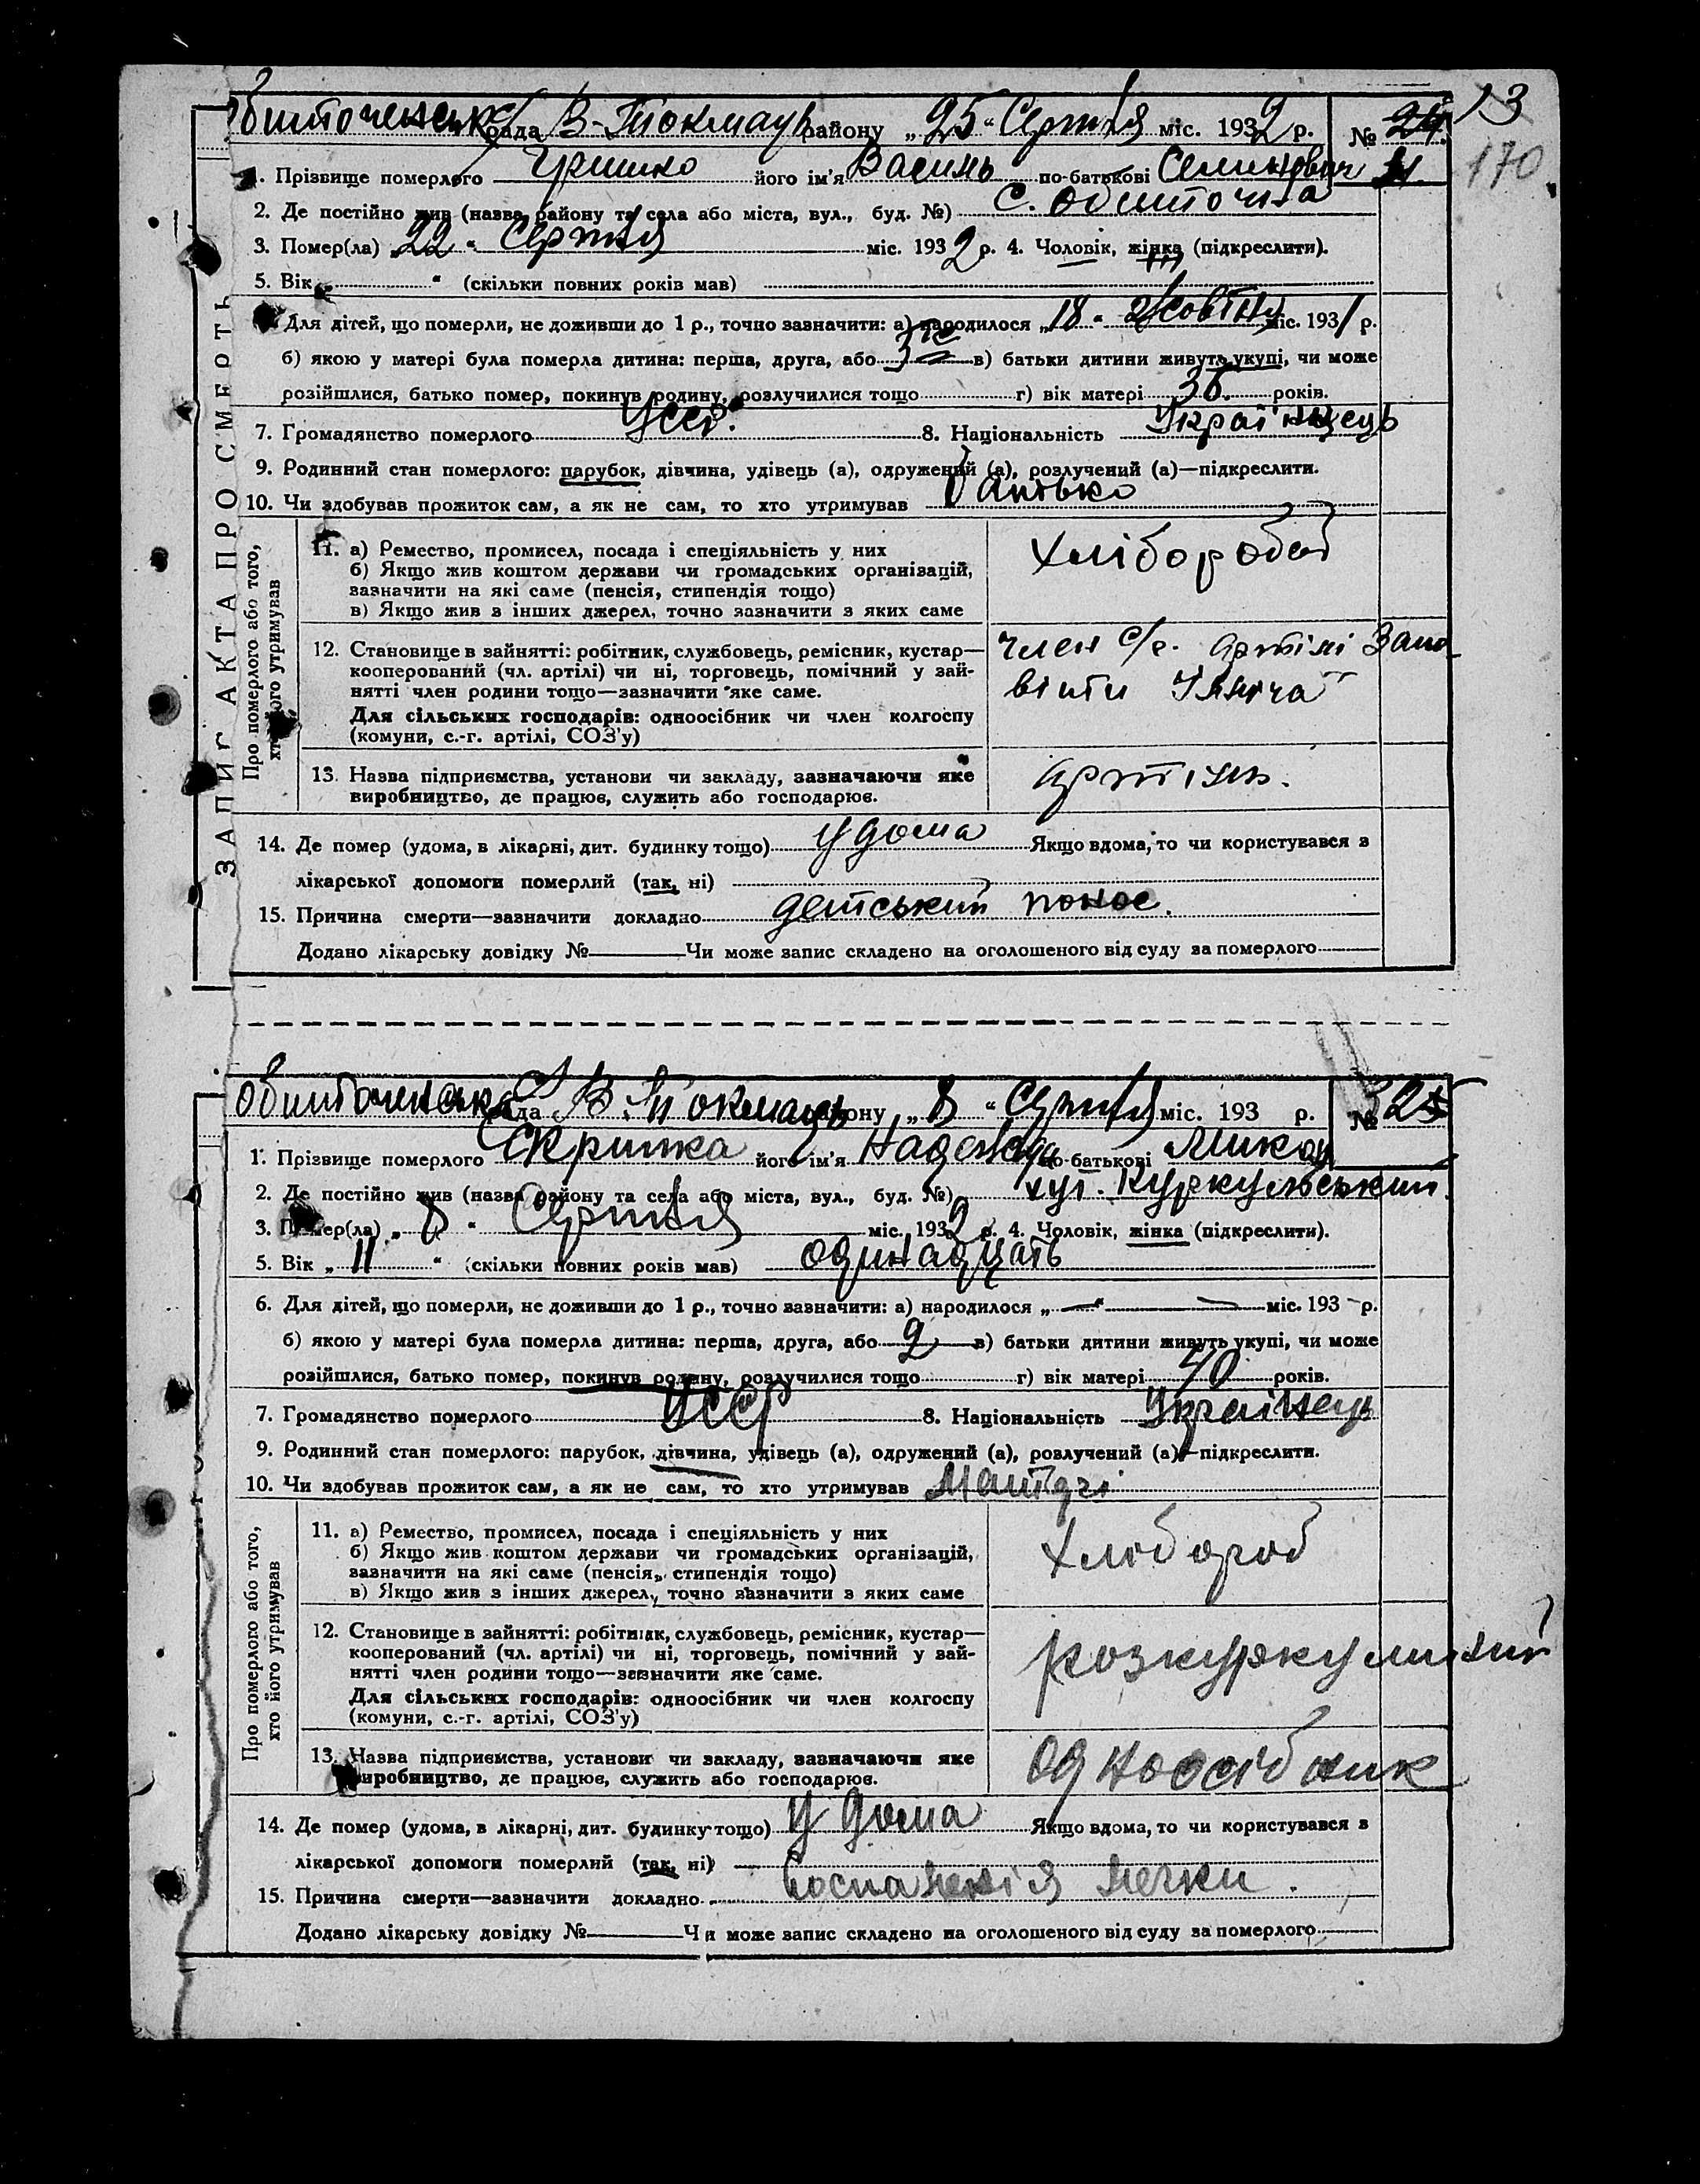 Обиточенська рада В-Токмацьк району „25“ Серпня міс. 1932 р. № 24
13
170
1. Прізвище померлого Гришко його ім'я Василь по-батькові Семинович
2. Де постійно жив (назва району та села або міста, вул., буд. №) С. Обиточна
3. Помер(ла) „22“ Серпня міс. 1932 р. 4. Чоловік, жінка (підкреслити).
5. Вік „ “ (скільки повних років мав)
Для дітей, що померли, не доживши до 1 р., точно зазначити: а) народилося „18“ Жовтня міс. 1931 р.
б) якою у матері була померла дитина: перша, друга, або 3 в) батьки дитини живуть укупі, чи може
розійшлися, батько помер, покинув родину, розлучилися тощо г) вік матері 36 років.
7. Громадянство померлого УССР. 8. Національність Українець
9. Родинний стан померлого: парубок, дівчина, удівець (а), одружений (а), розлучений (а)—підкреслити.
10. Чи здобував прожиток сам, а як не сам, то хто утримував батько
ЗАПИС АКТА ПРО СМЕРТЬ
Про померлого або того, хто його утримував
11. а) Ремество, промисел, посада і спеціяльність у них
б) Якщо жив коштом держави чи громадських організацій,
зазначити на які саме (пенсія, стипендія тощо)
в) Якщо жив з інших джерел, точно зазначити з яких саме
хлібороб
12. Становище в зайнятті: робітник, службовець, ремісник, кустар—
кооперований (чл. артілі) чи ні, торговець, помічний у зай-
нятті член родини тощо—зазначити яке саме.
Для сільських господарів: одноосібник чи член колгоспу
(комуни, с.-г. артілі, СОЗ'у)
член с/г. артілі Запо-
віти Ілліча
13. Назва підприємства, установи чи закладу, зазначаючи яке
виробництво, де працює, служить або господарює.
артіль.
14. Де помер (удома, в лікарні, дит. будинку тощо) удома Якщо вдома, то чи користувався з
лікарської допомоги померлий (так, ні)
15. Причина смерти—зазначити докладно детський понос.
Додано лікарську довідку № Чи може запис складено на оголошеного від суду за померлого
Обиточенська с/рада В. Токмацьк району „8“ Серпня міс. 193 р. № 25
1. Прізвище померлого Скрипка його ім'я Надежда по-батькові Микол
2. Де постійно жив (назва району та села або міста, вул., буд. №) хут. Куркульський.
3. Помер(ла) „8“ Серпня міс. 1932 р. 4. Чоловік, жінка (підкреслити).
5. Вік „11“ (скільки повних років мав) одинадцать
6. Для дітей, що померли, не доживши до 1 р., точно зазначити: а) народилося „—“ — міс. 193 – р.
б) якою у матері була померла дитина: перша, друга, або 2 в) батьки дитини живуть укупі, чи може
розійшлися, батько помер, покинув родину, розлучилися тощо г) вік матері 40 років.
7. Громадянство померлого УССР 8. Національність Українець
9. Родинний стан померлого: парубок, дівчина, удівець (а), одружений (а), розлучений (а)—підкреслити.
10. Чи здобував прожиток сам, а як не сам, то хто утримував
Про померлою або того, хто його утримував
11. а) Ремество, промисел, посада і спеціяльність у них
б) Якщо жив коштом держави чи громадських організацій,
зазначити на які саме (пенсія, стипендія тощо)
в) Якщо жив з інших джерел, точно зазначити з яких саме
хлібороб
12. Становище в зайнятті: робітник, службовець, ремісник, кустар—
кооперований (чл. артілі) чи ні, торговець, помічний у зай-
нятті член родини тощо—зазначити яке саме.
Для сільських господарів: одноосібник чи член колгоспу
(комуни, с.-г. артілі, СОЗ'у)
розкуркулиний
13. Назва підприємства, установи чи закладу, зазначаючи яке
виробництво, де працює, служить або господарює.
Одноосібник
14. Де помер (удома, в лікарні, дит. будинку тощо) у дома Якщо вдома, то чи користувався з
лікарської допомоги померлий (так, ні)
15. Причина смерти—зазначити докладно Воспаленія печки.
Додано лікарську довідку № Чи може запис складено на оголошеного від суду за померлого